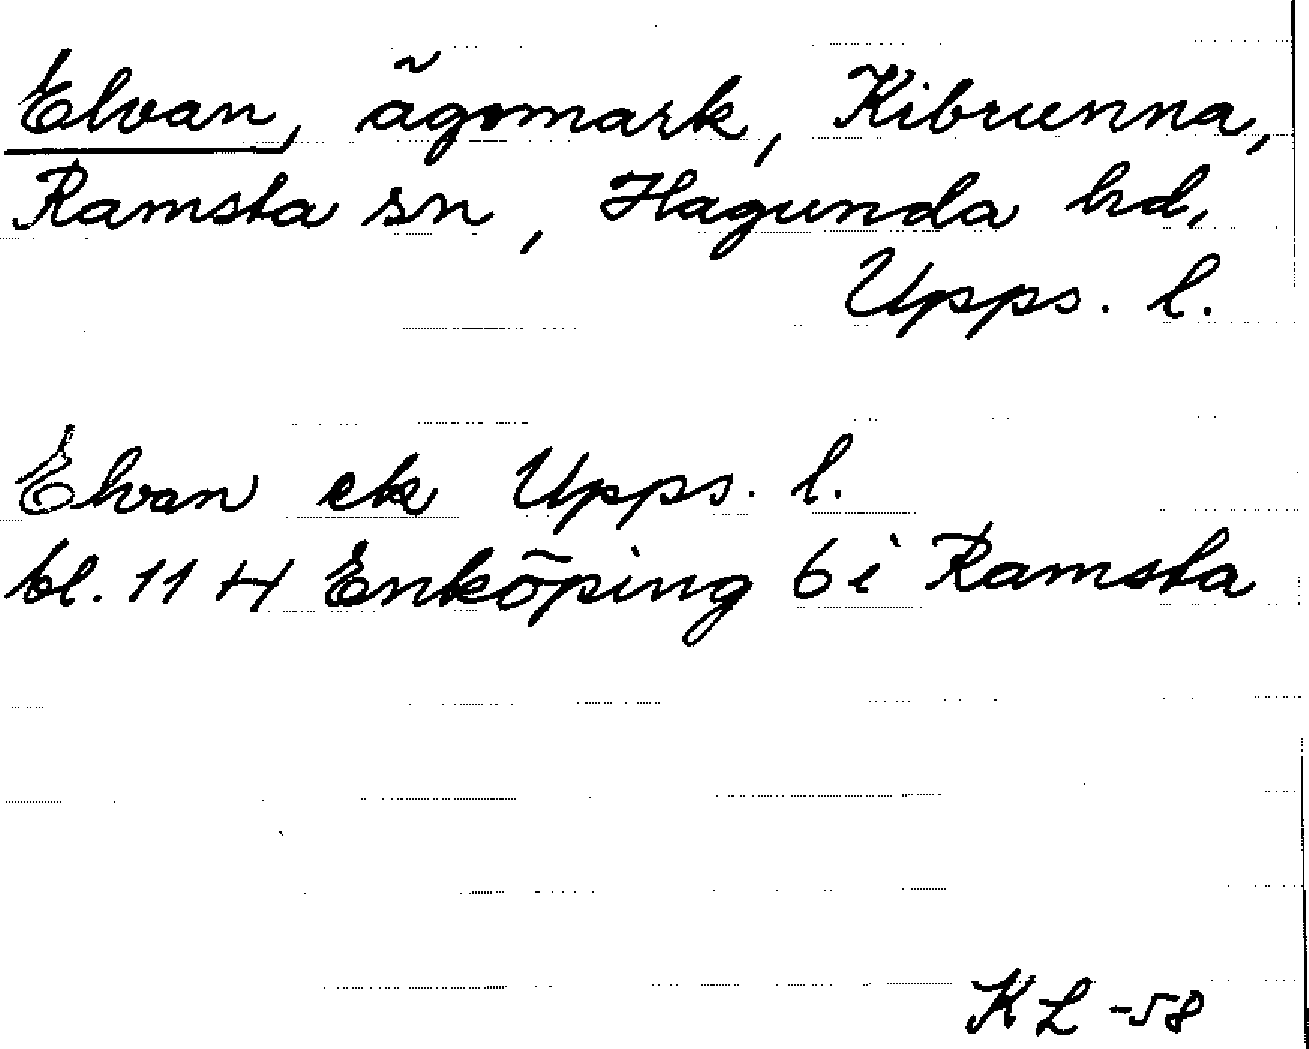 Elvan, ägomark, Kibrunna,
Ramsta sn, Hagunda hd,
Upps. l.
Elvan ek Upps. l.
bl. 114 Enköping 6 i Ramsta
KL -58